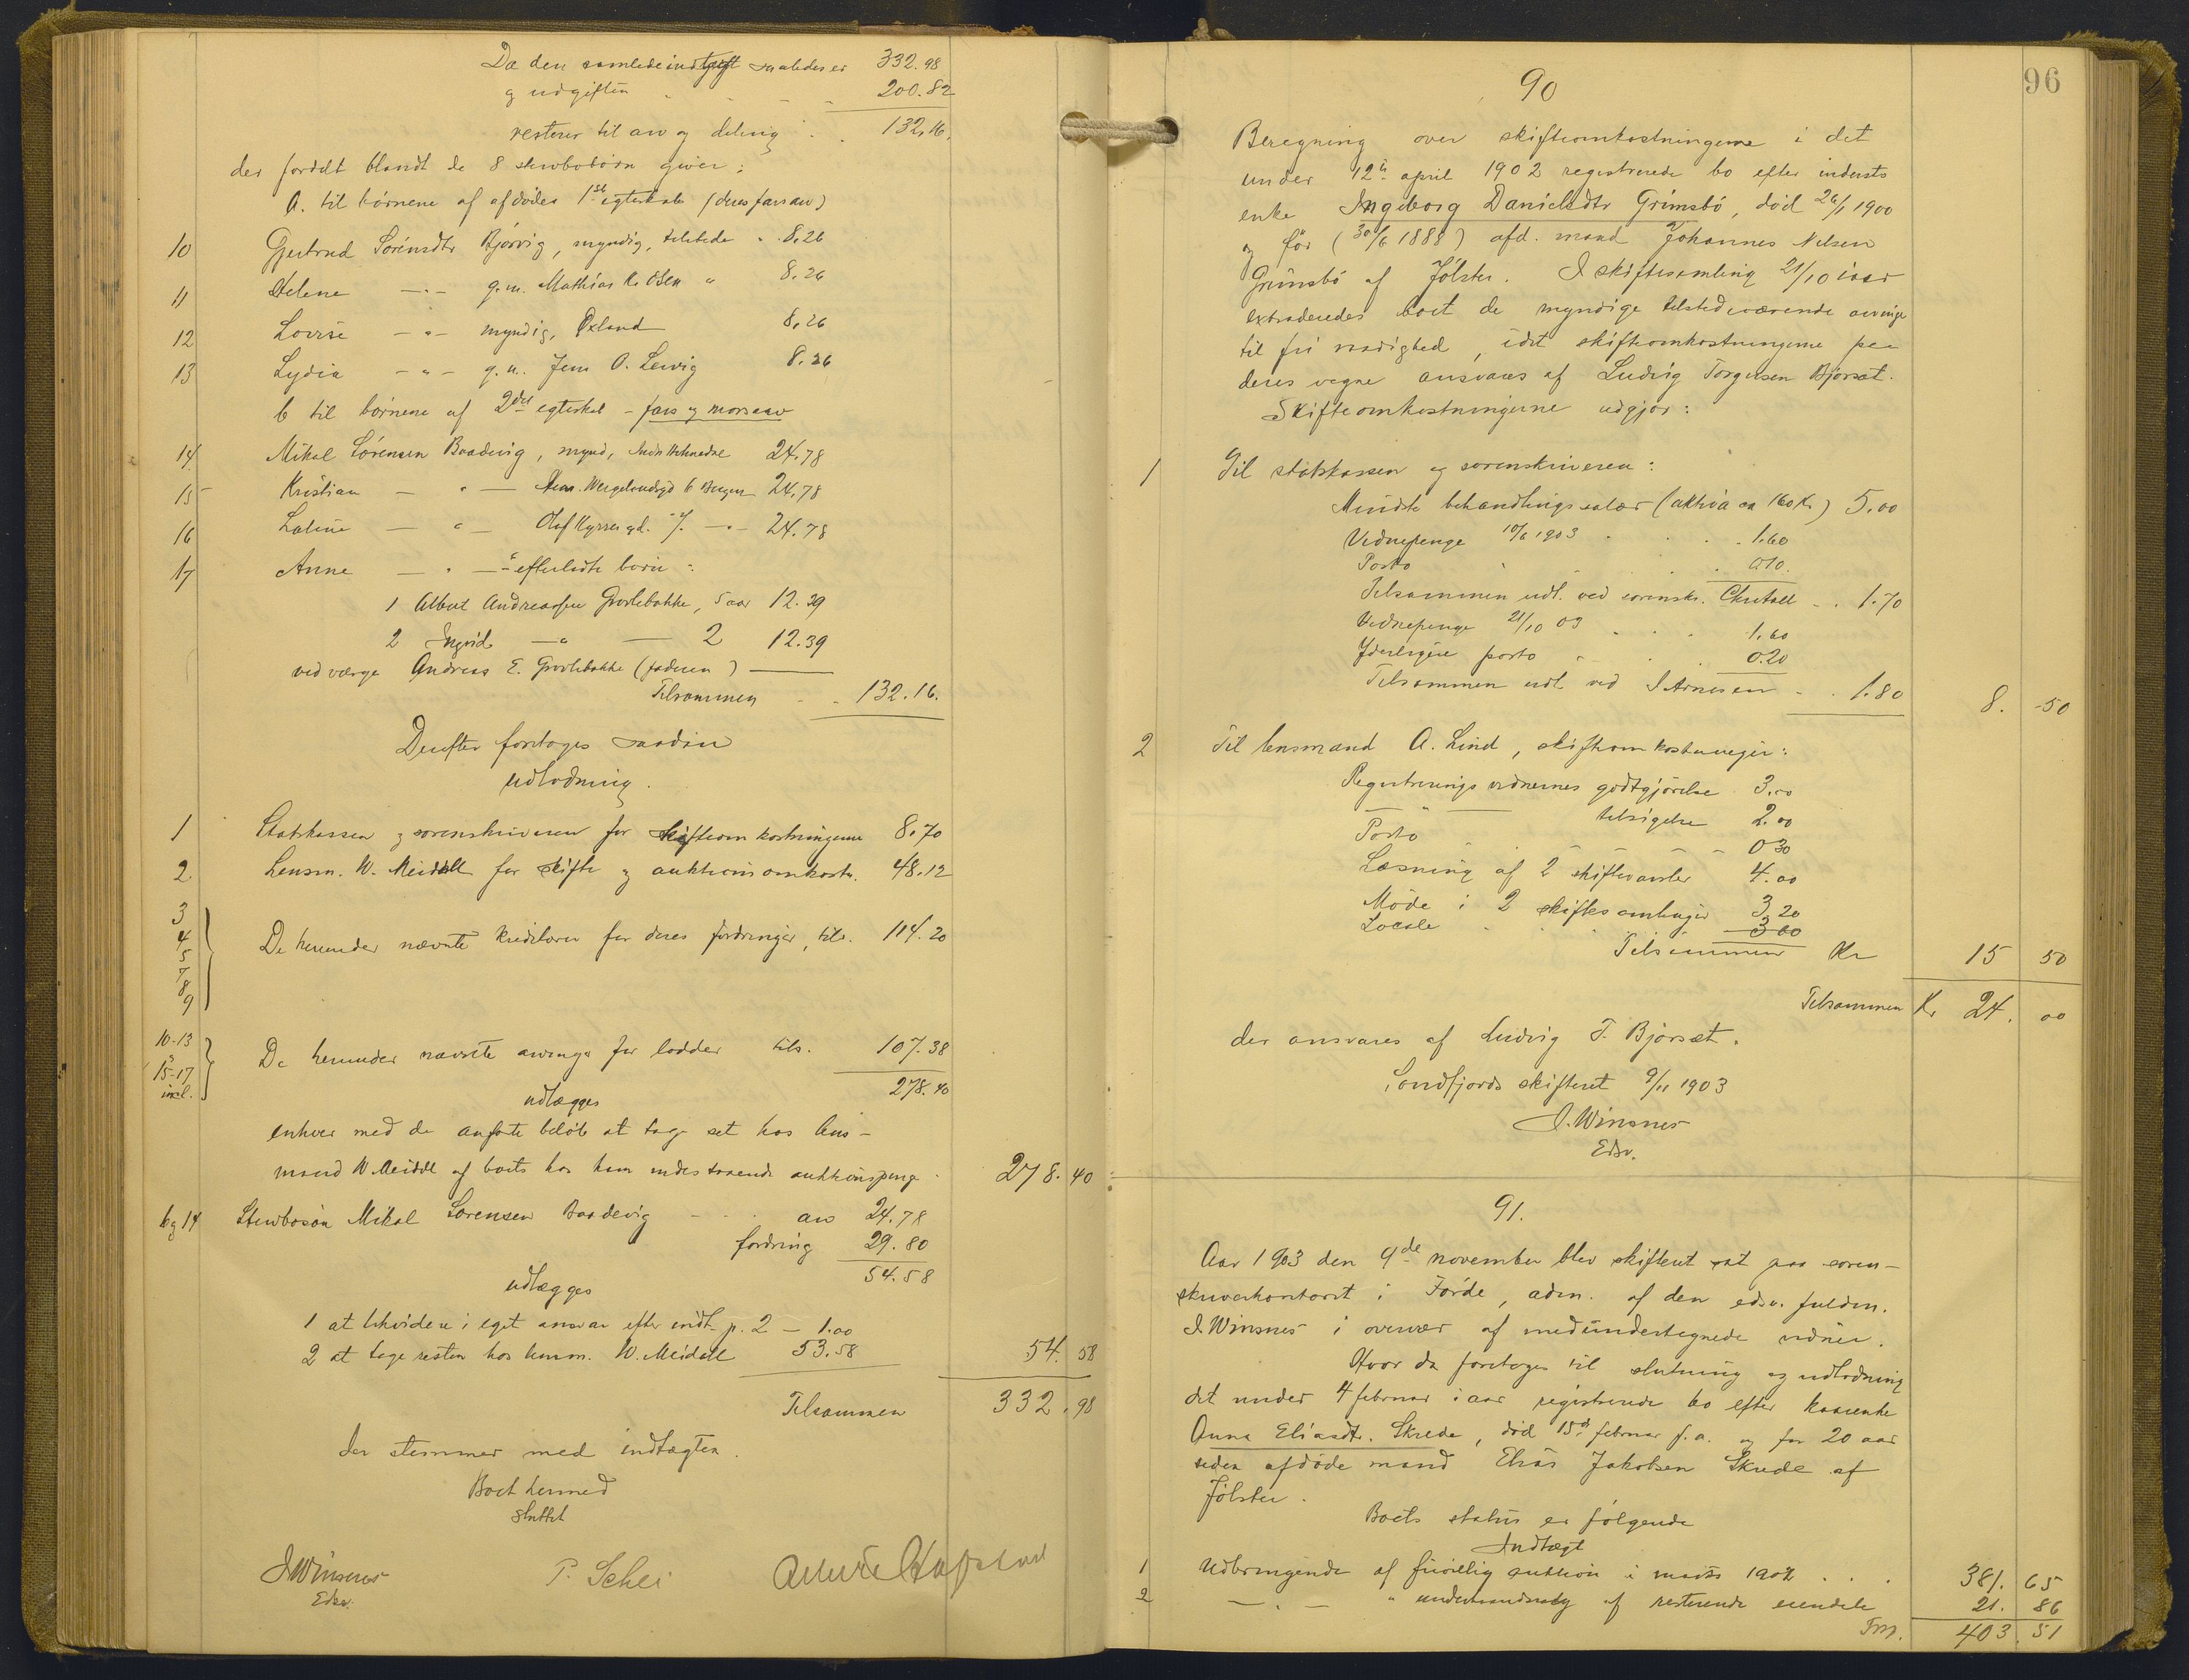 Da den samlede indtægt saaledes er 332.98
og udgiften " - - - 200.82
resterer til arv og deling . . 132,16.
der fordelt blandt de 8 stervbobørn giver:
A. til børnene af afdødes 1ste egteskab (deres farsarv)
10 Gjertrud Sørensdtr Bjørvig, myndig, tilstede . . 8,26
11 Helene —"— g.m. Mathias K. Osen " 8.26
12 Lovise —"— myndig, 8,26
13 Lydia —"— g.m. Jens O. Lervig 8.26
b til børnene af 2det egteskab – fars og morsarv
14 Mikal Sørensen Baadevig, mynd, 24.78
15 Kristian — " — Wergelandsgd 6 Bergen 24,78
16 Laline — " — Olaf Kyrres gd. — " — 24.78
17 Anne — " — efterladte børn:
1 Albert Andreassen Grovlebakke, 5 aar 12.39
2 Ingrid —"— 2 12.39
ved værge Andreas E. Grovlebakke (faderen) —
Tilsammen . . 132.16.
Derefter foretoges saadan
udlodning.
1 Statskassen og sorenskriveren for skifteomkostningerne 8.70
2. Lensm. W. Meidell for skifte og auktionsomkostn. 48.12
3
4
5
7
8
9
De herunder nævnte kreditorer for deres fordringer, tils. 114.20
10-13
15-17
incl.
De herunder nævnte arvinger for lodder tils. 107.38
278.40
udlægges
enhver med de anførte beløb at tage ret hos lens-
mand W Meidell af boets hos ham indestaaende auktionspenge . 278.40
6 og 14 Stervbosøn Mikal Sørensen Baadevig - - . arv 24.78
fordring 29.80
54.58
udlægges
1 at likvidere i eget ansvar efter indt. p. 2 — 1.00
2 at tage resten hos lensm. W. Meidell 53.58
54. 58
Tilsammen 332.98
der stemmer med indtægten.
Boet hermed
sluttet
J Winsnes
Edsv.
P. Schei
96
90
Beregning over skifteomkostningerne i det
under 12te april 1902 registrerede bo efter inderste
enke Ingeborg Danielsdtr Grimsbø, død 26/1 1900
og før (30/6 1888) afd. mand Johannes Nilsen
Grimsbø af Jølster. I skiftesamling 21/10 iaar
extraderedes boet de myndige tilstedeværende arvinge
til fri raadighed, idet skifteomkostningerne paa
deres vegne ansvares af Ludvig Torgersen Bjørsæt.
Skifteomkostningerne udgjør:
1 Til statskassen og sorenskriveren:
Mindste behandlingssalær (aktiva ca 160 Kr) 5.00
Vidnepenge 10/6 1903 . . . 1.60
Porto . . . 0.10.
Tilsammen udl. ved sorenskr. . . 1.70
Vidnepenge 21/10 03 . . . 1.60
Yderligere porto . . . 0.20
Tilsammen udl. ved S Arnesen . . 1.80
8. 50
2 Til lensmand A. Lind, skifteomkostninger:
Registreringsvidnernes godtgjørelse 3.00
— " — tilsigelse 2.00
Porto - - - - 0 30
Læsning af 2 skiftevarsler 4.00
Møde i 2 skiftesamlinger 3,20
Locale . . . 3 00
Tilsammen Kr 15 50
Tilsammen Kr 24. 00
der ansvares af Ludvig T. Bjørsæt.
Søndfjords skifteret 9/11 1903
J. Winsnes
Edsv.
91.
Aar 1903 den 9de november blev skifteret sat paa soren-
skriverkontoret i Førde, adm. af den edsv. fuldm.
J Winsnes i overvær af medundertegnede vidner.
Hvor da foretoges til slutning og udlodning
det under 4 februar i aar registrerede bo efter kaarenke
Anna Eliasdtr. Skrede, død 15de februar f.a. og for 20 aar
siden afdøde mand Elias Jakobsen Skrede af
Jølster.
Boets status er følgende
Indtægt
1 Udbringende af frivillig auktion i marts 1902 . . . 381. 65
2 — " — " underhaandssalg af resterende eiendele 21. 86
Tms. 403. 51